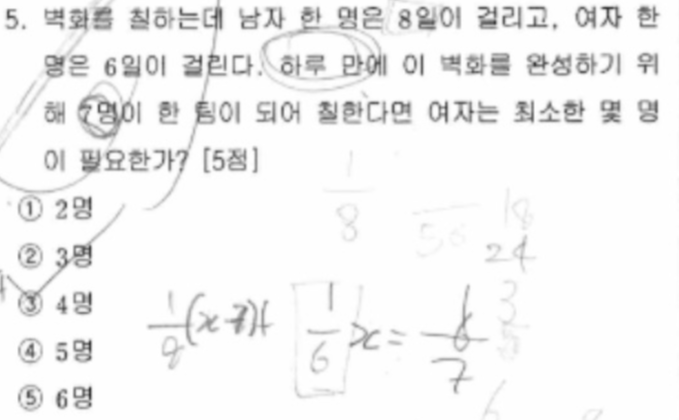 5. 벽화를 칠하는데 남자 한 명은 8일이 걸리고, 여자 한
명은 6일이 걸린다. 하루 만에 이 벽화를 완성하기 위
해 7명이 한 팀이 되어 칠한다면 여자는 최소한 몇 명
이 필요한가? [5점]
① 2명
② 3명
③ 4명
④ 5명
⑤ 6명
1/8
18
24
1/8(x-7)+ 1/6 x =
7